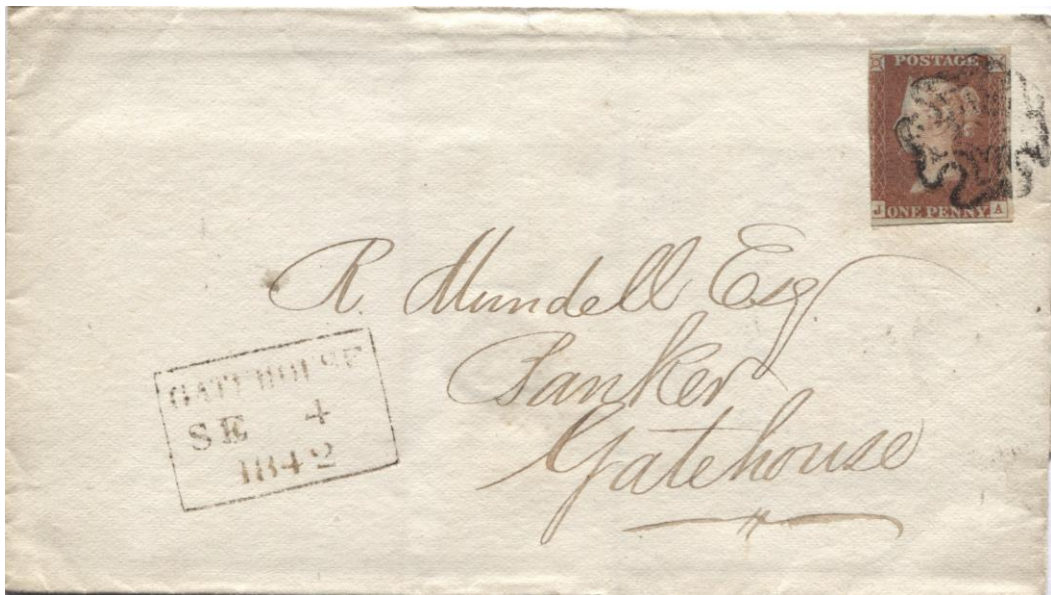 POSTAGE
J ONE PENNY A
R. Mundell Esq.
Banker
Gatehouse
GATEHOUSE
SE 4
1842